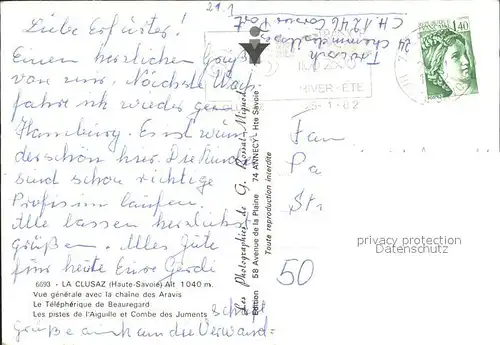 Liebe Erfürter!
Einen herzlichen Gruß
von uns. Nächste Woch
fahre ich wieder gen
Hamburg. Es ist wun
derschön hier. Die Kinder
sind schon richtige
Profis im laufen.
Alle lassen herzlichst
grüßen. Alles Gute
für heute Eure Gerdi
6693 - LA CLUSAZ (Haute-Savoie) Alt. 1040 m.
Vue générale avec la chaîne des Aravis
Le Téléphérique de Beauregard
Les pistes de l'Aiguille et Combe des Juments
Grüße auch an die Verwand=
schaft
Les Photographies de G. Rossat-Mignod
Edition 58 Avenue de la Plaine 74 ANNECY - Hte Savoie
Toute reproduction interdite
21.1
CH 1246 Corsier Port
24
HIVER-ETE
-1-82
1,40
Fam
Pa
Str
50
privacy protection
Datenschutz